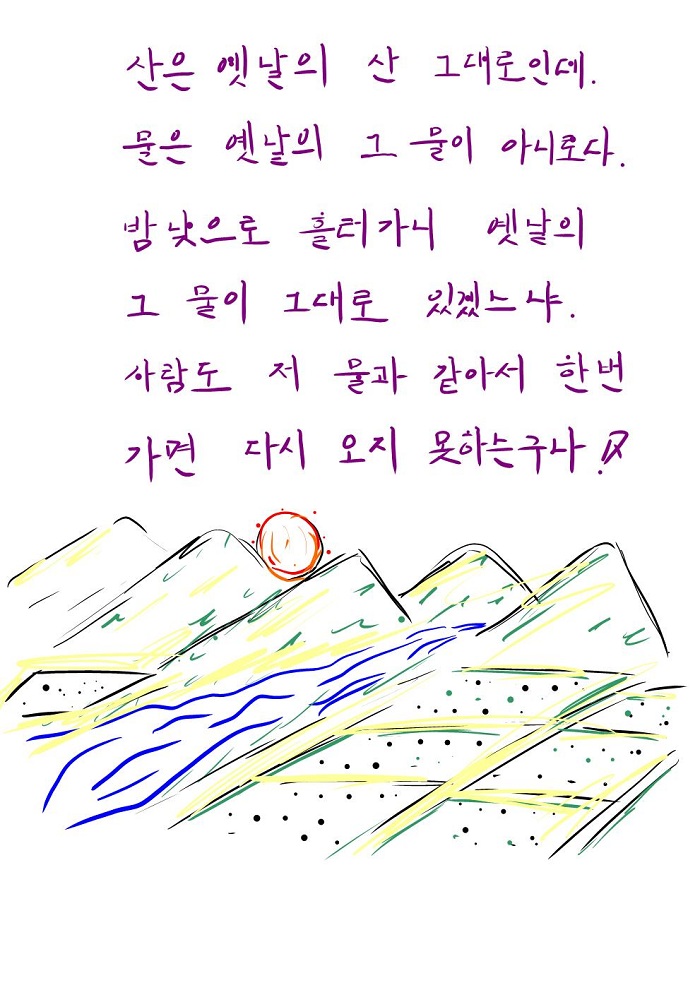 산은 옛날의 산 그대로인데.
물은 옛날의 그 물이 아니로다.
밤낮으로 흘터가니 옛날의
그 물이 그대로 있겠느냐.
사람도 저 물과 같아서 한번
가면 다시 오지 못하는구나